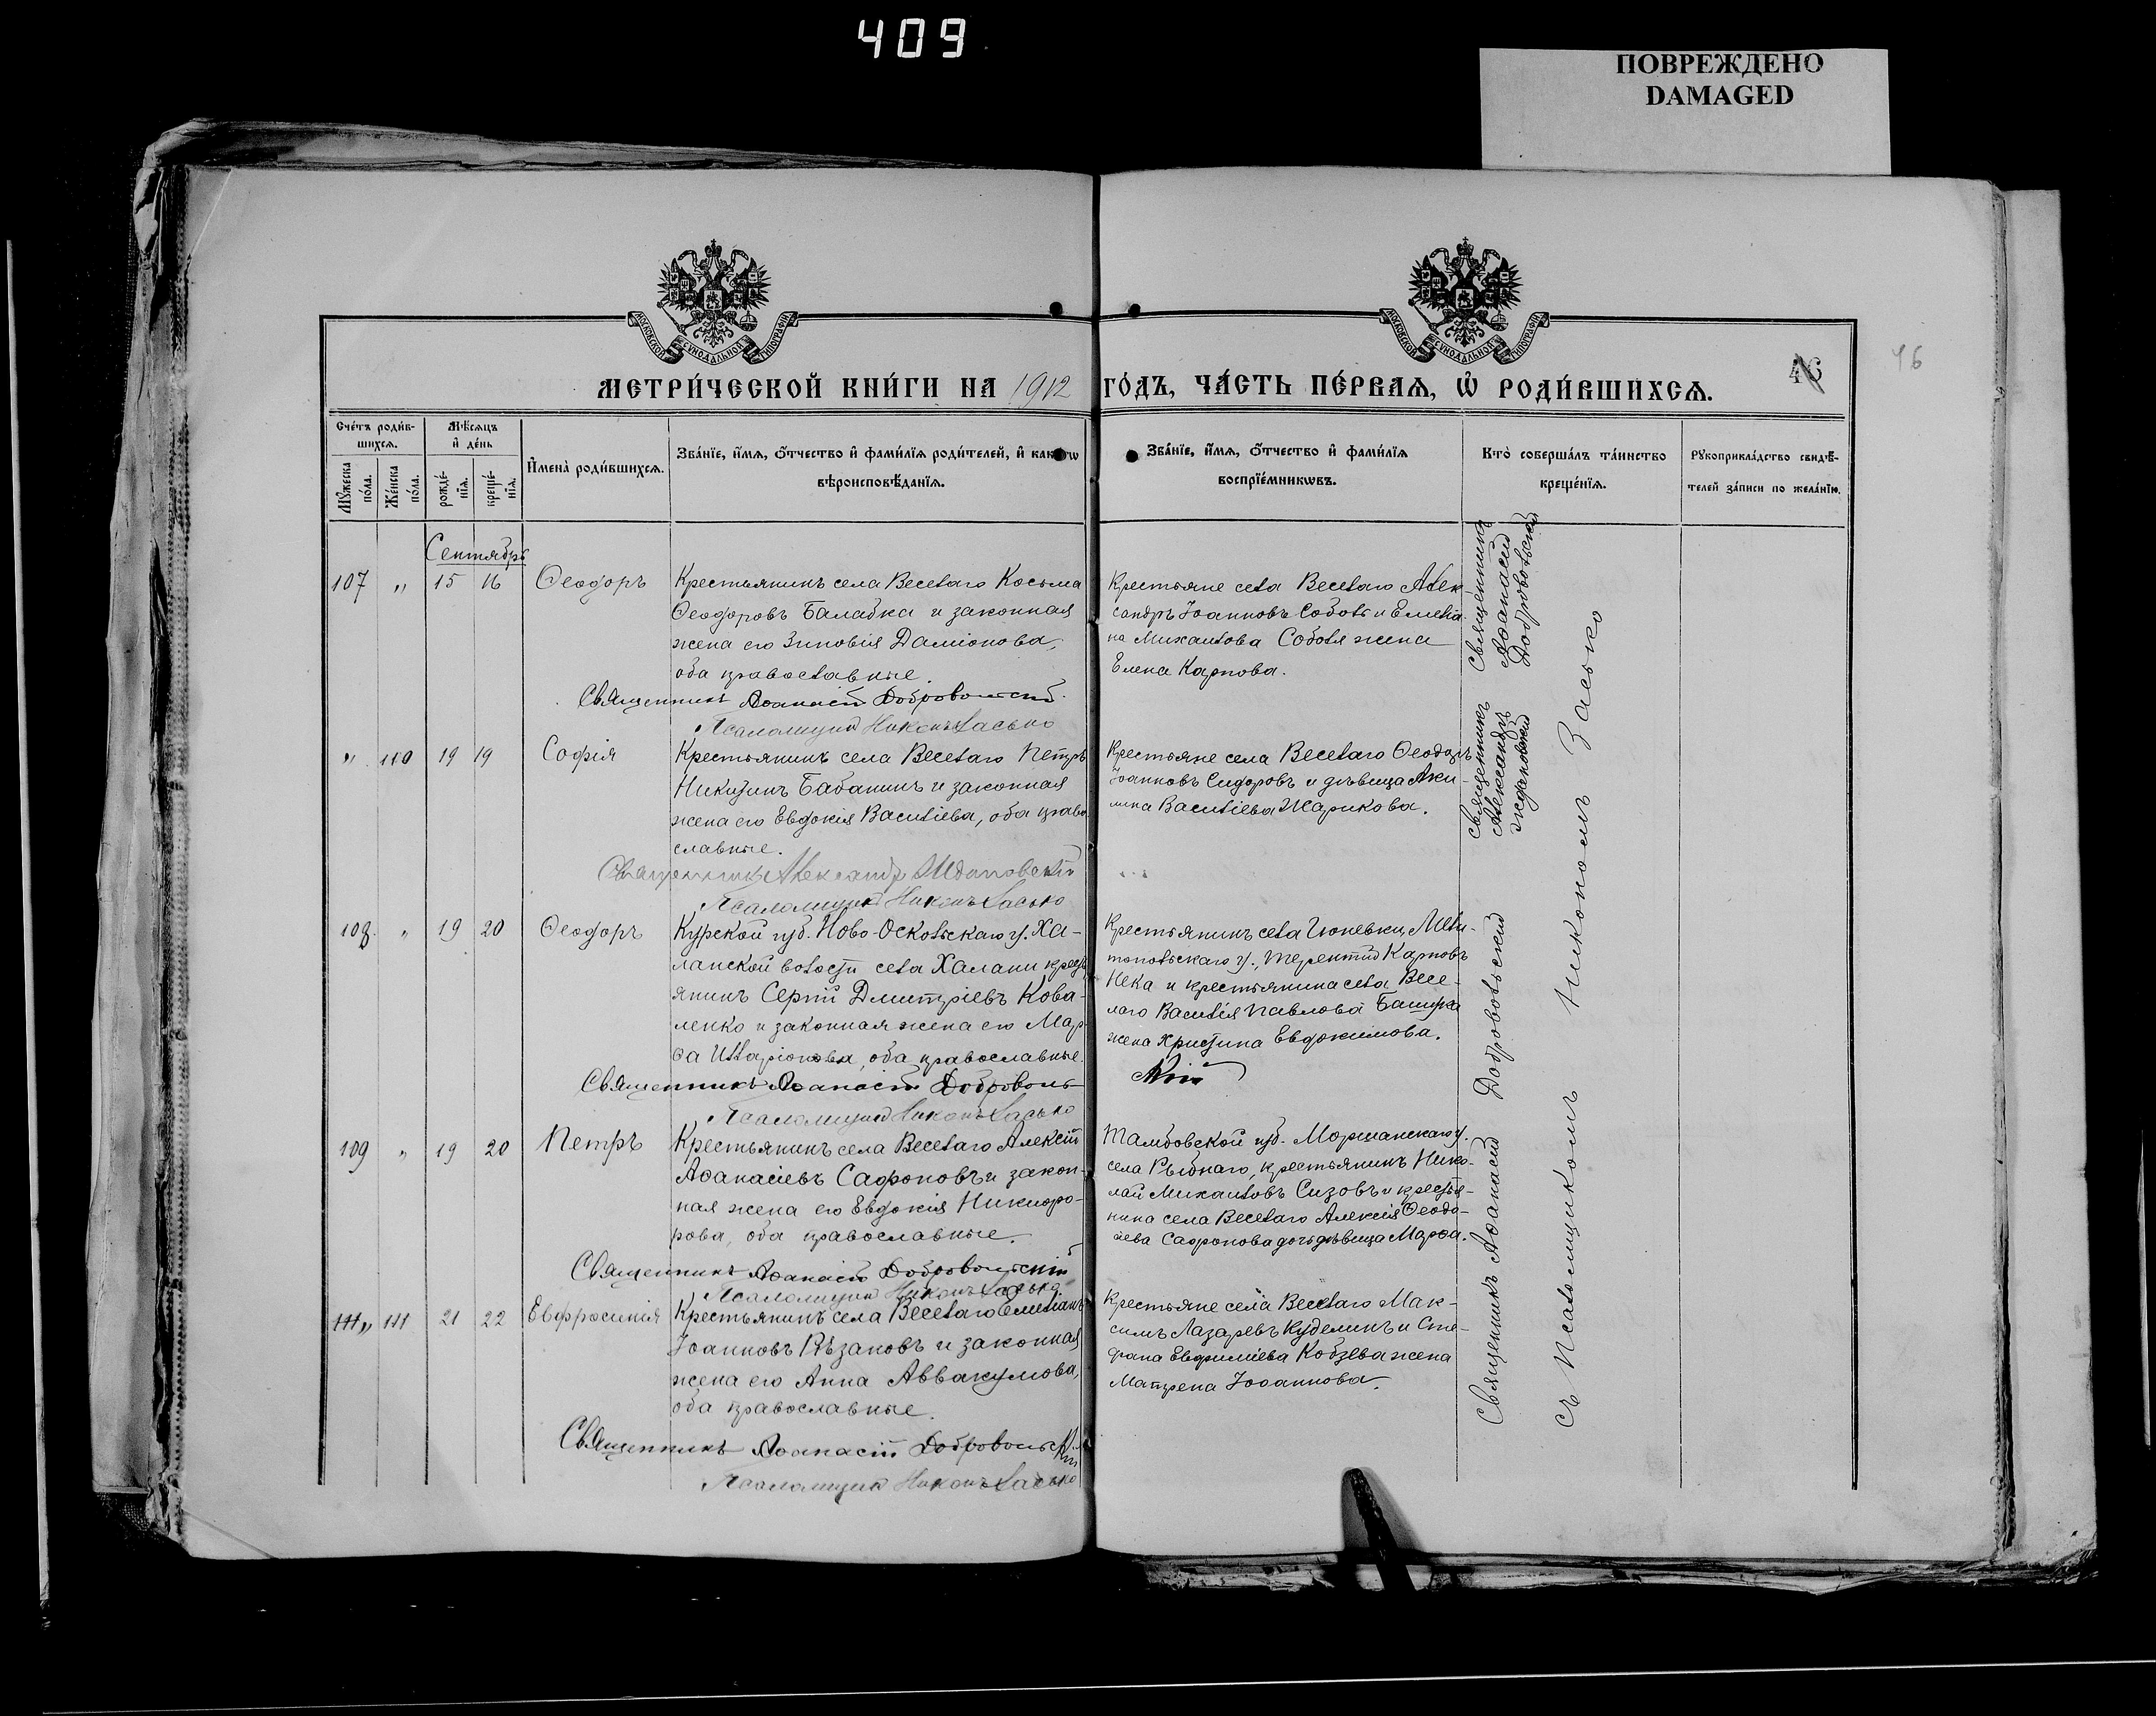 409
ПОВРЕЖДЕНО
DAMAGED
46
46
МОСКОВСКОЙ СѴНОДАЛЬНОЙ ТИПОГРАФІИ
МОСКОВСКОЙ СѴНОДАЛЬНОЙ ТИПОГРАФІИ
МЕТРИ́ЧЕСКОЙ КНИ́ГИ НА 1912 ГО́ДЪ, ЧА́СТЬ ПЕ́РВАѦ, Ѡ҆ РОДИ́ВШИХСѦ.
Сче́тъ роди́в-
шихсѧ.
Мꙋ́жеска по́ла.
Же́нска по́ла.
Мѣ́сѧцъ
и҆ де́нь
рожде́-
нїѧ.
креще́-
нїѧ.
И҆мена̀ роди́вшихсѧ.
Зва́нїе, и҆́мѧ, ѻ҆́тчество и҆ фами́лїѧ роди́телей, и҆ како́гѡ
вѣроисповѣ́данїѧ.
Зва́нїе, и҆́мѧ, ѻ҆́тчество и҆ фами́лїѧ
воспрїе́мникѡвъ.
Кто̀ соверша́лъ та́инство
креще́нїѧ.
Рꙋкоприкла́дство свидѣ́-
телей за́писи по жела́нїю.
Сентябрь
107 „ 15 16 Ѳеодоръ
Крестьянинъ села Веселаго Косьма
Ѳеодоровъ Балабка и законная
жена его Зиновія Даміонова,
оба православные.
Священникъ Аѳанасій Добровольскій.
Псаломщикъ Никонъ Засько
Крестьяне села Веселаго Алек-
сандръ Іоанновъ Соболь и Емелiа-
на Михаилова Соболя жена
Елена Карпова.
Священникъ
Аѳанасій
Добровольскій
„ 110 19 19 Софія
Крестьянинъ села Веселаго Петръ
Никитинъ Бабанинъ и законная
жена его Евдокія Василіева, оба право
славные.
Священникъ Александръ Ждановскій
Псаломщикъ Никонъ Засько
Крестьяне села Веселаго Ѳеодоръ
Іоанновъ Сидоровъ и дѣвица Аки-
лина Василіева Шарикова.
Священникъ
Александръ
Ждановскій
108. „ 19 20 Ѳеодоръ
Курской губ. Ново-Оскольскаго у. Ха-
ланской волости села Халани кресть
янинъ Сергій Дмитріевъ Кова-
ленко и законная жена его Мар-
ѳа Илларіонова, оба православные.
Священникъ Аѳанасій Доброволь
Псаломщикъ Никонъ Засько
Крестьянинъ села Гюневки, Мели-
топольскаго у., Терентій Карповъ
Нека и крестьянина села Весе-
лаго Василія Павлова Башука
жена Христина Евдокимова.
скій
109 „ 19 20 Петръ
Крестьянинъ села Веселаго Алексій
Аѳанасіевъ Сафроновъ и закон-
ная жена его Евдокія Никифо-
рова, оба православные.
Священникъ Аѳанасій Добровольскій
Псаломщикъ Никонъ Засько
Тамбовской губ. Моршанскаго у.
села Рыбнаго, крестьянинъ Нико-
лай Михаиловъ Сизовъ и крестья-
нина села Веселаго Алексія Ѳеодо-
сіева Сафронова дочь дѣвица Марѳа.
111 „ 111 21 22 Евфросинія
Крестьянинъ села Веселаго Емеліанъ
Іоанновъ Рѣзановъ и законная
жена его Анна Аввакумова,
оба православные.
Священникъ Аѳанасій Добровольскій
Псаломщикъ Никонъ Засько
Крестьяне села Веселаго Мак-
симъ Лазаревъ Куделинъ и Сте-
фана Евфиміева Кобзева жена
Матрена Іоаннова.
Священникъ Аѳанасій Добровольскій
съ Псаломщикомъ Никономъ Засько